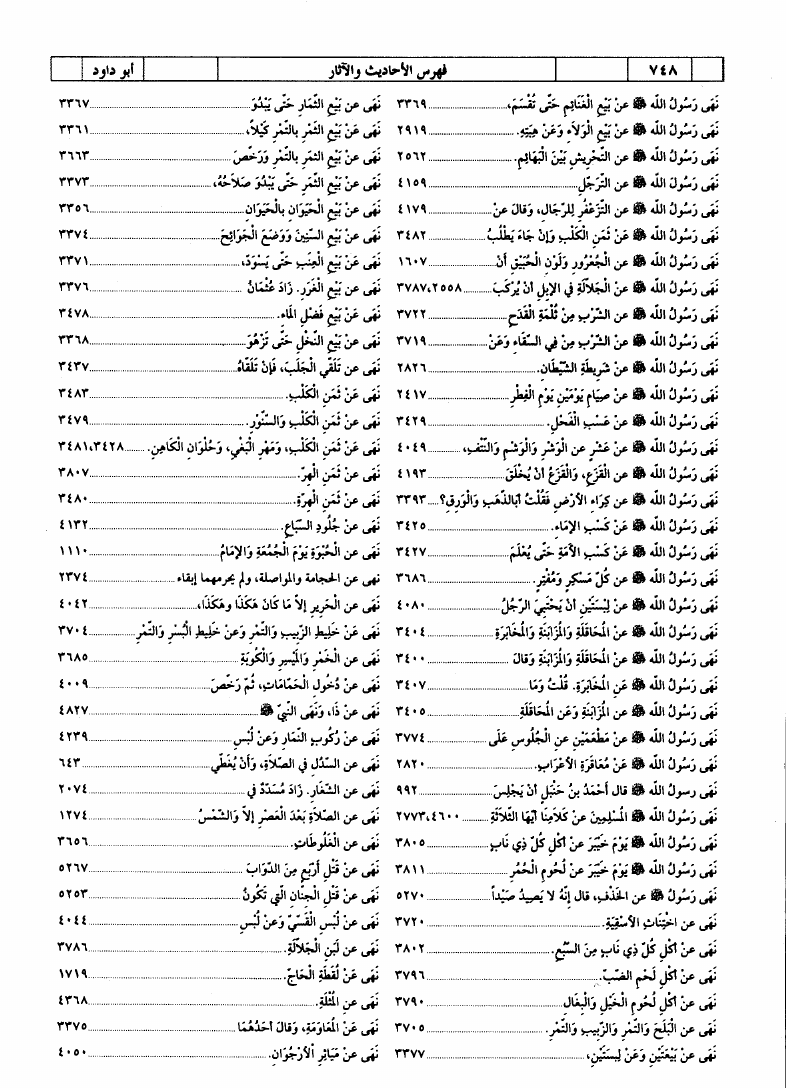 ٧٤٨ فهرس الأحاديث والآثار أبو داود
نَهَى رَسُولُ اللَّه ﷺ عنْ بَيْعِ الْغَنَائِمِ حَتَّى تُقْسَمَ، ٣٣٦٩
نَهَى رَسُولُ اللَّه ﷺ عنْ بَيْعِ الْوَلاَءِ وَعَنْ هِبَتِهِ. ٢٩١٩
نَهَى رَسُولُ اللَّه ﷺ عن التَّحْرِيشِ بَيْنَ الْبَهَائِمِ. ٢٥٦٢
نَهَى رَسُولُ اللَّه ﷺ عن التَّرَجُّلِ ٤١٥٩
نَهَى رَسُولُ اللَّه ﷺ عن التَّزَعْفُرِ لِلرِّجَالِ، وَقالَ عنْ ٤١٧٩
نَهَى رَسُولُ اللَّه ﷺ عَنْ ثَمَنِ الْكَلْبِ وَإِنْ جَاءَ يَطْلُبُ ٣٤٨٢
نَهَى رَسُولُ اللَّه ﷺ عن الْجُعْرُورِ وَلَوْنِ الْحُبَيْقِ أَنْ ١٦٠٧
نَهَى رَسُولُ اللَّه ﷺ عنْ الْجَلاَّلَةِ في الإِبِلِ أنْ يُرْكَبَ ٣٧٨٧،٢٥٥٨
نَهَى رَسُولُ اللَّه ﷺ عن الشُّرْبِ مِنْ ثُلْمَةِ الْقَدَحِ ٣٧٢٢
نَهَى رَسُولُ اللَّه ﷺ عن الشُّرْبِ مِنْ فِي السِّقَاءِ وَعَنْ ٣٧١٩
نَهَى رَسُولُ اللَّه ﷺ عنْ شَرِيطَةِ الشَّيْطَانِ. ٢٨٢٦
نَهَى رَسُولُ اللَّه ﷺ عنْ صِيَامِ يَوْمَيْنِ يَوْمِ الْفِطْرِ ٢٤١٧
نَهَى رَسُولُ اللَّه ﷺ عنْ عَسْبِ الْفَحْلِ. ٣٤٢٩
نَهَى رَسُولُ اللَّه ﷺ عنْ عَشْرٍ عن الْوَشْرِ وَالْوَشْمِ وَالنَّتْفِ، ٤٠٤٩
نَهَى رَسُولُ اللَّه ﷺ عن الْقَزَعِ، وَالْقَزَعُ أنْ يُحْلَقَ ٤١٩٣
نَهَى رَسُولُ اللَّه ﷺ عن كِرَاءِ الأرْضِ فَقُلْتُ أبَالذَّهَبِ وَالْوَرِقِ؟ ٣٣٩٣
نَهَى رَسُولُ اللَّه ﷺ عَنْ كَسْبِ الإمَاءِ. ٣٤٢٥
نَهَى رَسُولُ اللَّه ﷺ عَنْ كَسْبِ الأَمَةِ حَتَّى يُعْلَمَ ٣٤٢٧
نَهَى رَسُولُ اللَّه ﷺ عن كُلِّ مُسْكِرٍ وَمُفْتِرٍ. ٣٦٨٦
نَهَى رَسُولُ اللَّه ﷺ عنْ لِبْسَتَيْنِ أنْ يَحْتَبِيَ الرَّجُلُ ٤٠٨٠
نَهَى رَسُولُ اللَّه ﷺ عنْ المُحَاقَلَةِ وَالمُزَابَنَةِ وَالمُخَابَرَةِ ٣٤٠٤
نَهَى رَسُولُ اللَّه ﷺ عنْ المُحَاقَلَةِ وَالمُزَابَنَةِ وَقالَ ٣٤٠٠
نَهَى رَسُولُ اللَّه ﷺ عَنِ المُخَابَرَةِ. قُلْتُ وَمَا ٣٤٠٧
نَهَى رَسُولُ اللَّه ﷺ عن المُزَابَنَةِ وَعَن المُحَاقَلَةِ ٣٤٠٥
نَهَى رَسُولُ اللَّه ﷺ عنْ مَطْعَمَيْنِ عن الْجُلُوسِ عَلَى ٣٧٧٤
نَهَى رَسُولُ اللَّه ﷺ عَنْ مُعَاقَرَةِ الأعْرَابِ. ٢٨٢٠
نَهَى رسولُ اللَّه ﷺ قال أَحْمَدُ بنُ حَنْبَلٍ أنْ يَجْلِسَ ٩٩٢
نَهَى رَسُولُ اللَّه ﷺ المُسْلِمِينَ عنْ كَلاَمِنَا أيُّهَا الثَّلاَثَةُ ٢٧٧٣،٤٦٠٠
نَهَى رَسُولُ اللَّه ﷺ يَوْمَ خَيْبَرَ عن أكْلِ كُلِّ ذِي نَابٍ ٣٨٠٥
نَهَى رَسُولُ اللَّه ﷺ يَوْمَ خَيْبَرَ عنْ لُحومِ الْحُمُرِ ٣٨١١
نَهَى رَسُولُ ﷺ عن الخَذْفِ، قال إنَّهُ لا يَصِيدُ صَيْداً ٥٢٧٠
نَهَى عن اخْتِنَاثِ الأسْقِيَةِ. ٣٧٢٠
نَهَى عنْ أكْلِ كُلِّ ذِي نَابٍ مِنَ السَّبُعِ. ٣٨٠٢
نَهَى عنْ أكْلِ لَحْمِ الضَّبِّ. ٣٧٩٦
نَهَى عنْ أكْلِ لُحُومِ الْخَيْلِ وَالْبِغَالِ ٣٧٩٠
نَهَى عن الْبَلَحِ وَالتَّمْرِ وَالزَّبِيبِ وَالتَّمْرِ. ٣٧٠٥
نَهَى عنْ بَيْعَتَيْنِ وَعَنْ لِبْسَتَيْنِ، ٣٣٧٧
نَهَى عن بَيْعِ الثِّمَارِ حَتَّى يَبْدُوَ ٣٣٦٧
نَهَى عَنْ بَيْعِ الثَّمْرِ بالتَّمْرِ كَيْلاً، ٣٣٦١
نَهَى عنْ بَيْعِ الثمَرِ بالتَّمْرِ وَرَخَّصَ ٣٦٦٣
نَهَى عنْ بَيْعِ الثَّمَرِ حَتَّى يَبْدُوَ صَلاَحُهُ، ٣٣٧٣
نَهَى عنْ بَيْعِ الْحَيَوَانِ بالْحَيَوَانِ ٣٣٥٦
نَهَى عنْ بَيْعِ السِّنِينَ وَوَضَعَ الْجَوَائِحَ ٣٣٧٤
نَهَى عَنْ بَيْعِ الْعِنَبِ حَتَّى يَسْوَدَّ، ٣٣٧١
نَهَى عن بَيْعِ الْغَرَرِ. زَادَ عُثْمَانُ ٣٣٧٦
نَهَى عَنْ بَيْعِ فَضْلِ المَاءِ. ٣٤٧٨
نَهَى عنْ بَيْعِ النَّخْلِ حَتَّى تَزْهُوَ ٣٣٦٨
نَهَى عن تَلَقِّي الْجَلَبِ، فَإنْ تَلَقَّاهُ ٣٤٣٧
نَهَى عَنْ ثَمَنِ الْكَلْبِ. ٣٤٨٣
نَهَى عنْ ثَمَنِ الْكَلْبِ وَالسِّنَّوْرِ. ٣٤٧٩
نَهَى عَنْ ثَمَنِ الْكَلْبِ، وَمَهْرِ الْبَغِيِّ، وَحُلْوَانِ الْكَاهِنِ. ٣٤٨١،٣٤٢٨
نَهَى عنْ ثَمَنِ الْهِرِّ. ٣٨٠٧
نَهَى عنْ ثَمَنِ الْهِرَّةِ. ٣٤٨٠
نَهَى عنْ جُلُودِ السِّبَاعِ. ٤١٣٢
نَهَى عن الْحُبْوَةِ يَوْمَ الْجُمُعَةِ وَالإمَامُ ١١١٠
نهى عن الحجامة والمواصلة، ولم يحرمهما إبقاء ٢٣٧٤
نَهَى عن الْحَرِيرِ إلاَّ مَا كَانَ هكَذَا وهكَذَا، ٤٠٤٢
نَهَى عَنْ خَلِيطِ الزَّبِيبِ وَالتَّمْرِ وَعنْ خَلِيطِ الْبُسْرِ وَالتَّمْرِ ٣٧٠٤
نَهَى عن الْخَمْرِ وَالْمَيْسِرِ وَالْكُوبَةِ ٣٦٨٥
نَهَى عنْ دُخُولِ الْحَمَّامَاتِ، ثُمَّ رَخَّصَ ٤٠٠٩
نَهَى عنْ ذَا، وَنَهَى النَّبيُّ ﷺ ٤٨٢٧
نَهَى عنْ رُكُوبِ النِّمَارِ وَعنْ لُبْسِ ٤٢٣٩
نَهَى عن السَّدْلِ في الصَّلاَةِ، وَأَنْ يُغَطِّي ٦٤٣
نَهَى عن الشِّغَارِ. زَادَ مُسَدَّدٌ في ٢٠٧٤
نَهَى عن الصَّلاَةِ بَعْدَ الْعَصْرِ إلاَّ وَالشَّمْسُ ١٢٧٤
نَهَى عن الْغَلُوطَاتِ. ٣٦٥٦
نَهَى عنْ قَتْلِ أَرْبَعٍ مِنَ الدَّوَابِّ ٥٢٦٧
نَهَى عنْ قَتْلِ الْجِنَّانِ الَّتي تَكُونُ ٥٢٥٣
نَهَى عنْ لُبْسِ الْقَسِّيِّ وَعنْ لُبْسِ ٤٠٤٤
نَهَى عنْ لَبَنِ الْجَلاَّلَةِ. ٣٧٨٦
نَهَى عَنْ لُقَطَةِ الْحَاجِّ. ١٧١٩
نَهَى عن المُثْلَةِ. ٤٣٦٨
نَهَى عَنْ المُعَاوَمَةِ، وَقالَ أحَدُهُمَا ٣٣٧٥
نَهَى عنْ مَيَاثِرِ الأُرْجُوَانِ. ٤٠٥٠